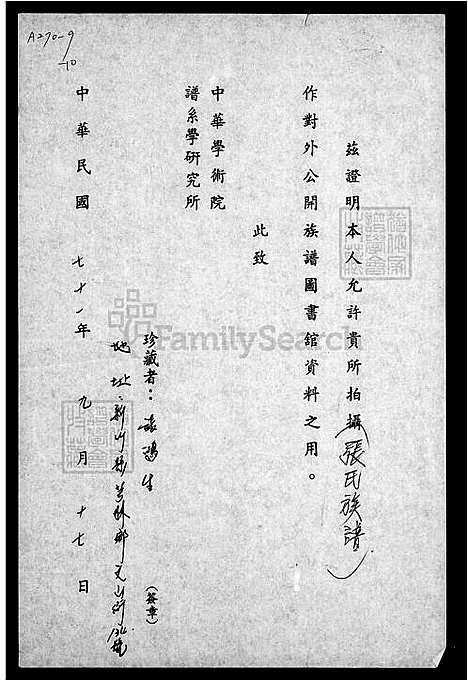 A270-9
-10
茲證明本人允許貴所拍攝(張氏族譜)
作對外公開族譜圖書館資料之用。
此致
中華學術院
譜系學研究所
珍藏者：張鴻生
(簽章)
地址：新竹縣芎林鄉文山村
中華民國 七十一年 九月 十七日
FamilySearch